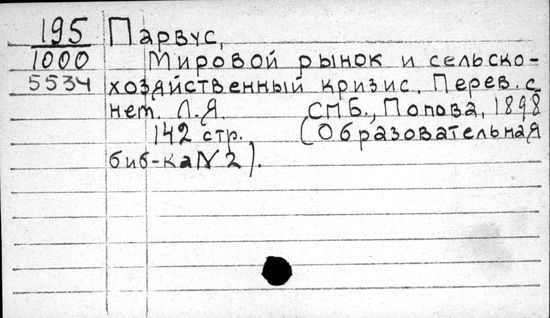 195 Парвус,
1000 Мировой рынок и сельско-
5534 хозяйственный кризис. Перев. с
нем. Л.Я СПБ., Попова, 1898
142 стр. (Образовательная
биб-ка N 2).